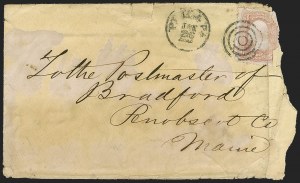 To the Postmaster of
Bradford
Penobscot Co
Maine